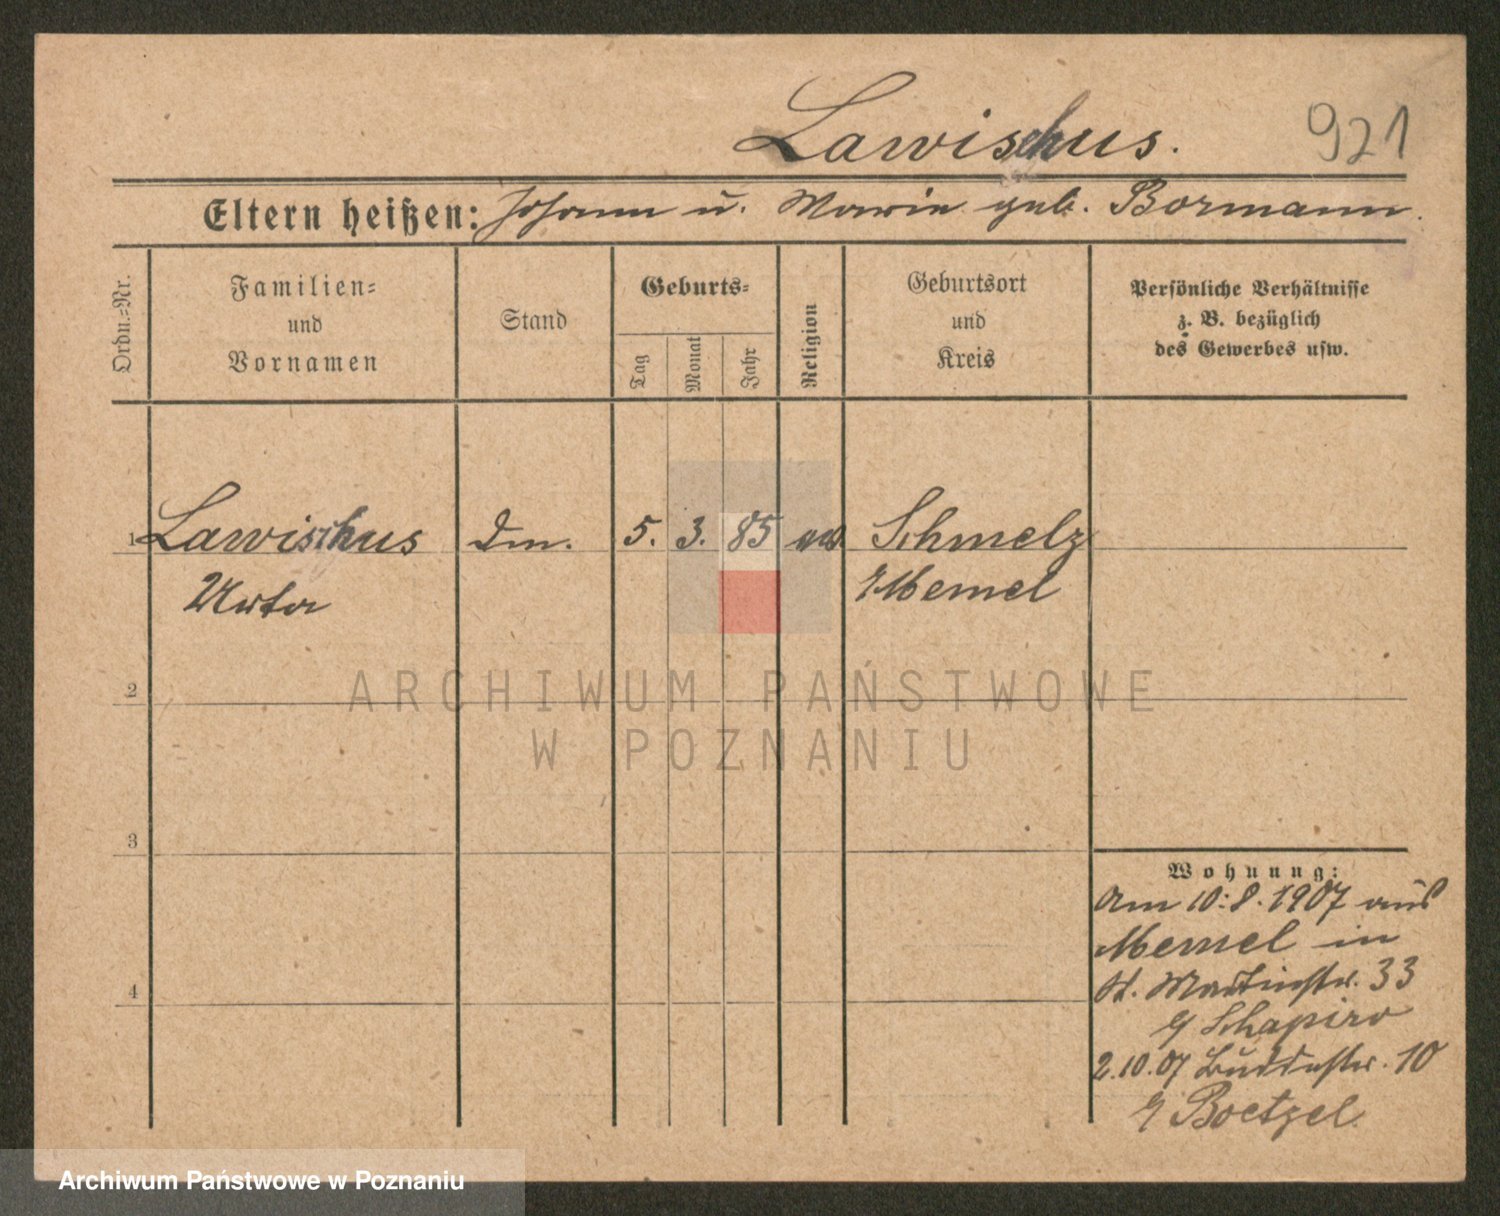 Lawischus.
921
Eltern heißen: Johann u. Marie geb. Bormann.
Ordn.-Nr.
Familien-
und
Vornamen
Stand
Geburts-
Tag
Monat
Jahr
Religion
Geburtsort
und
Kreis
Persönliche Verhältnisse
z. B. bezüglich
des Gewerbes usw.
1 Lawischus dm. 5. 3. 85 ev. Schmelz
Urta Memel
ARCHIWUM PAŃSTWOWE
W POZNANIU
2
3
4
Wohnung:
Am 10.8.1907 aus
Memel in
St. Martinstr. 33
Schapiro
2.10.07 Buddestr. 10
Boetzel
Archiwum Państwowe w Poznaniu